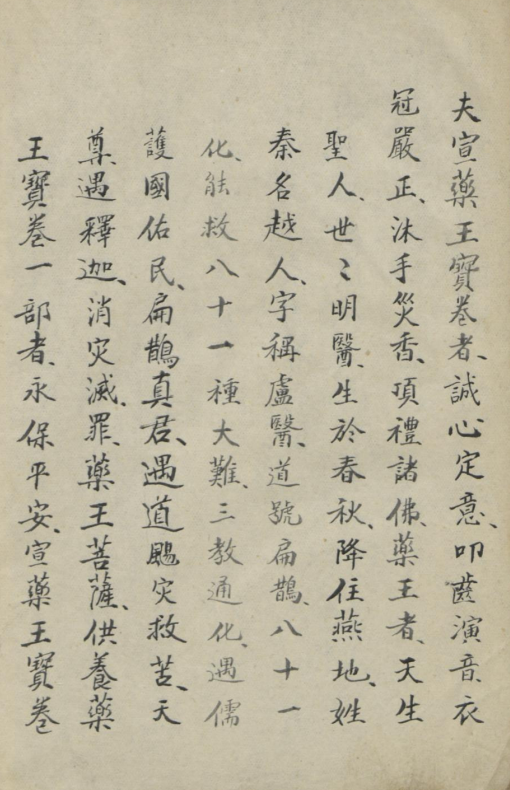 夫宣藥王寶卷者、誠心定意、叩齒演音、衣
冠嚴正、沐手焚香、項禮諸佛、藥王者、天生
聖人、世〻明醫、生於春秋、降住燕地、姓
秦名越人、字稱盧醫、道號扁鵲、八十一
化、能救八十一種大難、三教通化、遇儒
護國佑民、扁鵲真君、遇道賜灾救苦、天
尊、遇釋迦、消灾滅罪、藥王菩薩、供養藥
王寶卷一部者、永保平安、宣藥王寶卷